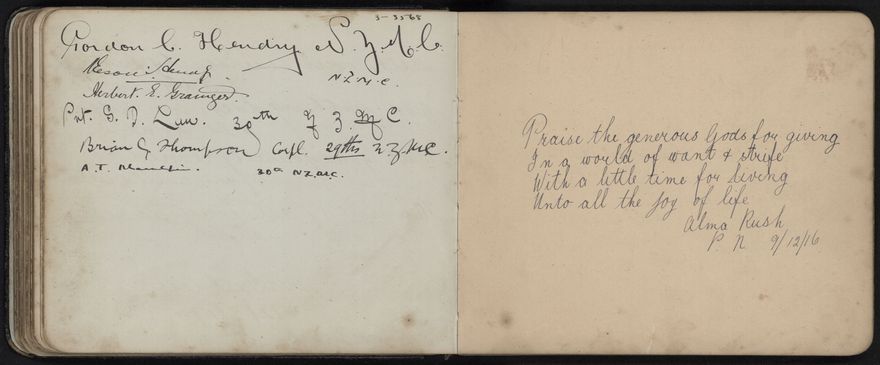 3-3568
Gordon C. Hendry N.Z.M.C.
N.Z.M.C.
Herbert. E. Grainger.
Pvt. G. D. Law. 30th N.Z.M.C.
Brian G Thompson Corpl. 29ths N.Z.M.C.
A.T.
30th N.Z.M.C.
Praise the generous Gods for giving
In a world of want & strife
With a little time for living
Unto all the joy of life
Alma Rush
P. N. 9/12/16